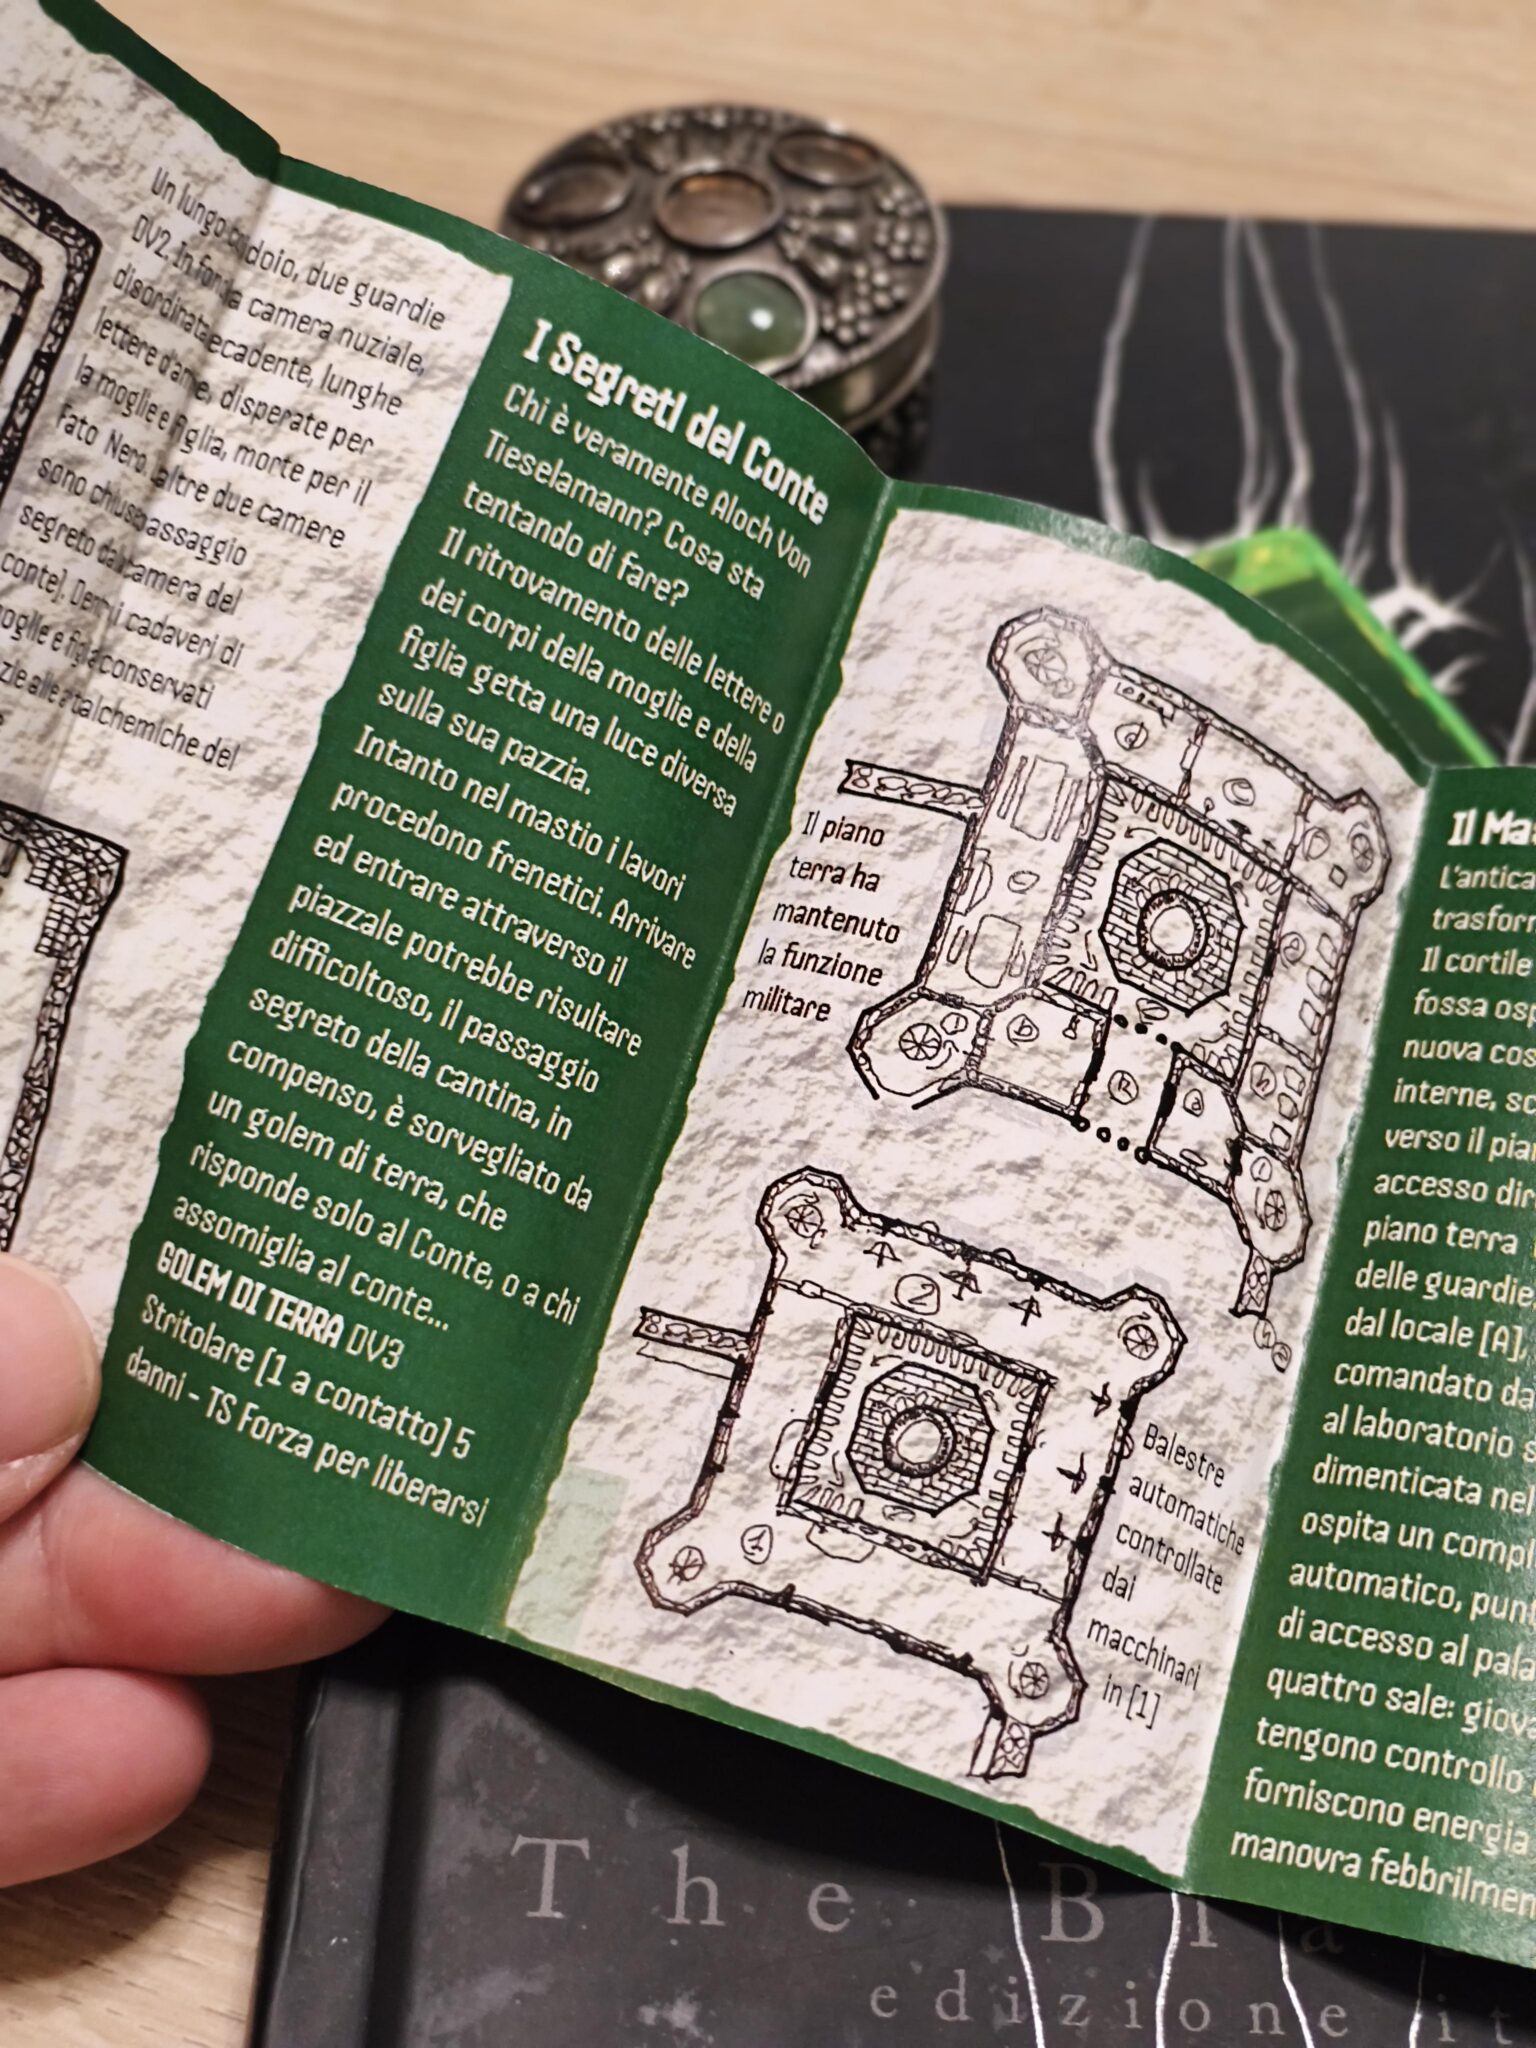 Un lungo doio, due guardie
DV2. In fon a camera nuziale,
disordinata ecadente, lunghe
lettere d'a e, disperate per
la moglie e figlia, morte per il
Fato Nero. altre due camere
sono chius passaggio
segreto da camera del
conte). Den i cadaveri di
moglie e figlia conservati
zie alle a talchemiche del
I Segreti del Conte
Chi è veramente Aloch Von
Tieselamann? Cosa sta
tentando di fare?
Il ritrovamento delle lettere o
dei corpi della moglie e della
figlia getta una luce diversa
sulla sua pazzia.
Intanto nel mastio i lavori
procedono frenetici. Arrivare
ed entrare attraverso il
piazzale potrebbe risultare
difficoltoso, il passaggio
segreto della cantina, in
compenso, è sorvegliato da
un golem di terra, che
risponde solo al Conte, o a chi
assomiglia al conte...
GOLEM DI TERRA DV3
Stritolare [1 a contatto] 5
danni - TS Forza per liberarsi
Il piano
terra ha
mantenuto
la funzione
militare
2
1
Balestre
automatiche
controllate
dai
macchinari
in [1]
Il Ma
L'antica
trasfor
Il cortile
fossa osp
nuova cos
interne, sc
verso il pia
accesso dir
piano terra
delle guardie
dal locale [A],
comandato da
al laboratorio s
dimenticata nel
ospita un compl
automatico, pun
di accesso al pala
quattro sale: giov
tengono controllo
forniscono energia
manovra febbrilmen
The Bla
edizione it